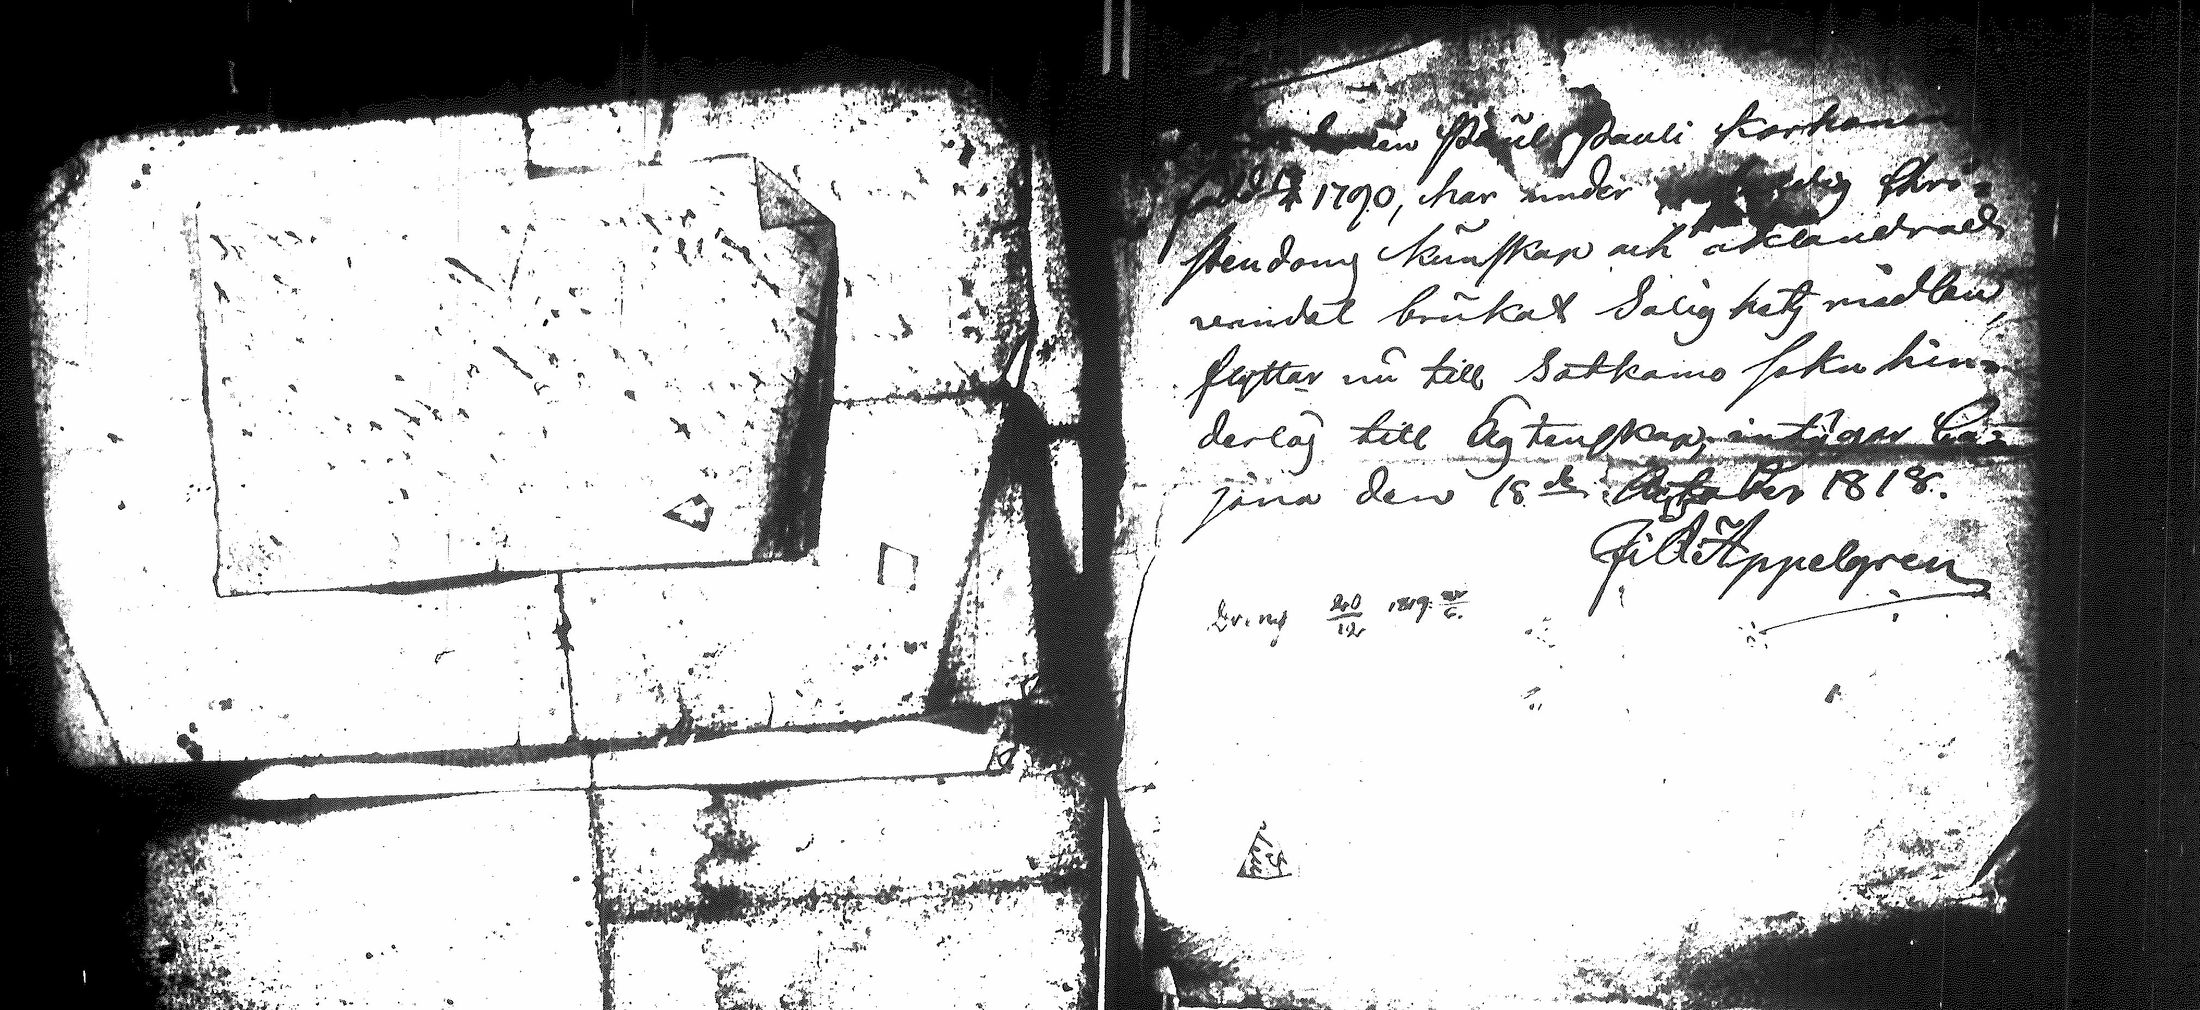 Paul Pauli Korhonen
född 1790, har under Chri-
stendoms kunskap och oklandrad
vandel brukat Salighets medlen,
flyttar nu till Sotkamo sokn hin-
derlös till Ägtenskap, intygar Ca-
jana den 18de October 1818.
Appelgren
20/12 1819